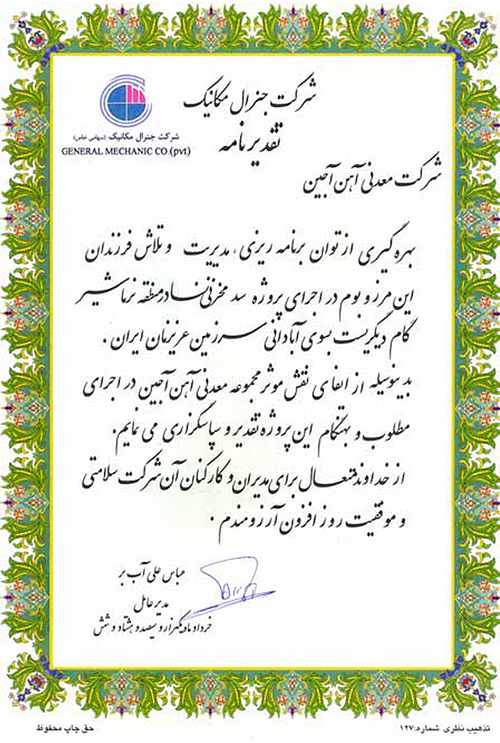 شرکت جنرال مکانیک
تقدیرنامه
شرکت جنرال مکانیک (سهامی خاص)
GENERAL MECHANIC CO.(pvt)
شرکت معدنی آهن آجین
بهره گیری از توان برنامه ریزی، مدیریت و تلاش فرزندان
این مرز و بوم در اجرای پروژه سد مخزنی نساء در منطقه نرماشیر
گام دیگریست بسوی آبادانی سرزمین عزیزمان ایران.
بدینوسیله از ایفای نقش موثر مجموعه معدنی آهن آجین در اجرای
مطلوب و بهنگام این پروژه تقدیر و سپاسگزاری می نمایم.
از خداوند متعال برای مدیران و کارکنان آن شرکت سلامتی
و موفقیت روز افزون آرزومندم.
عباس علی آب بر
مدیر عامل
خرداد ماه یکهزار و سیصد و هشتاد و شش
تذهیب نظری شماره: ۱۲۷
حق چاپ محفوظ